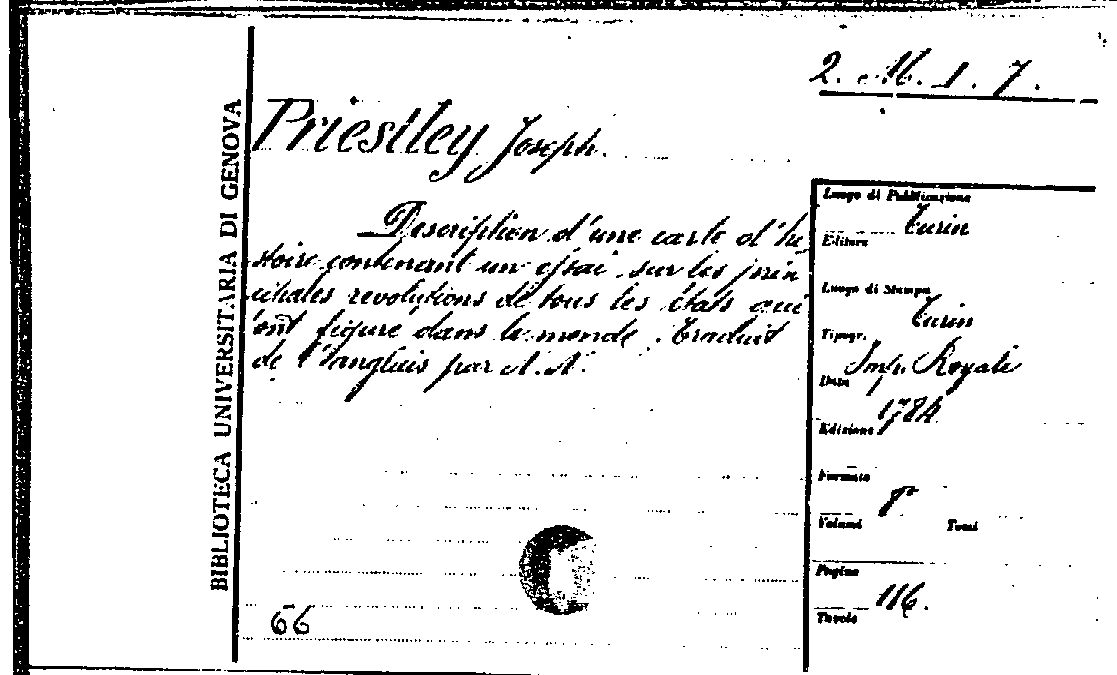 2. M. 1. 7.
BIBLIOTECA UNIVERSITARIA DI GENOVA
Priestley Joseph.
Description d'une carte d'hi
stoire contenant un essai sur les prin
cipales revolutions de tous les états qui
ont figure dans le monde. Traduit
de l'anglais par A. A.
66
Luogo di Pubblicazione
Turin
Editore
Luogo di Stampa
Turin
Tipogr.
Imp. Royale
Data
1784
Edizione
Formato
8°
Volumi Tomi
Pagine
116.
Tavole